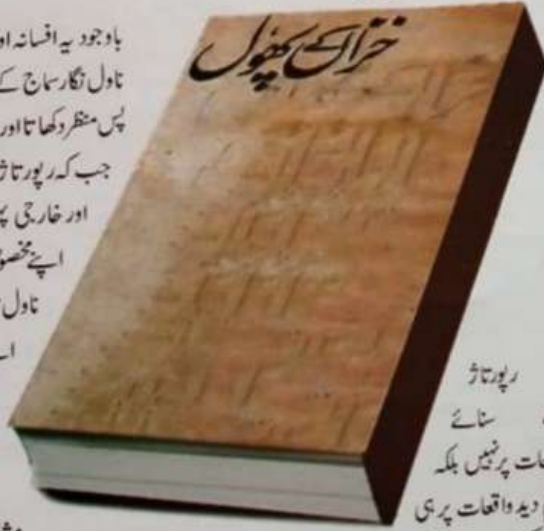 خزاں کے پھول
باوجود یہ افسانہ او
ناول نگار سماج کے
پس منظر دکھاتا اور
جب کہ رپورتاژ
اور خارجی پہ
اپنے مخصو
ناول
رپورتاژ
سنائے
پر نہیں بلکہ
دید واقعات پر ہی